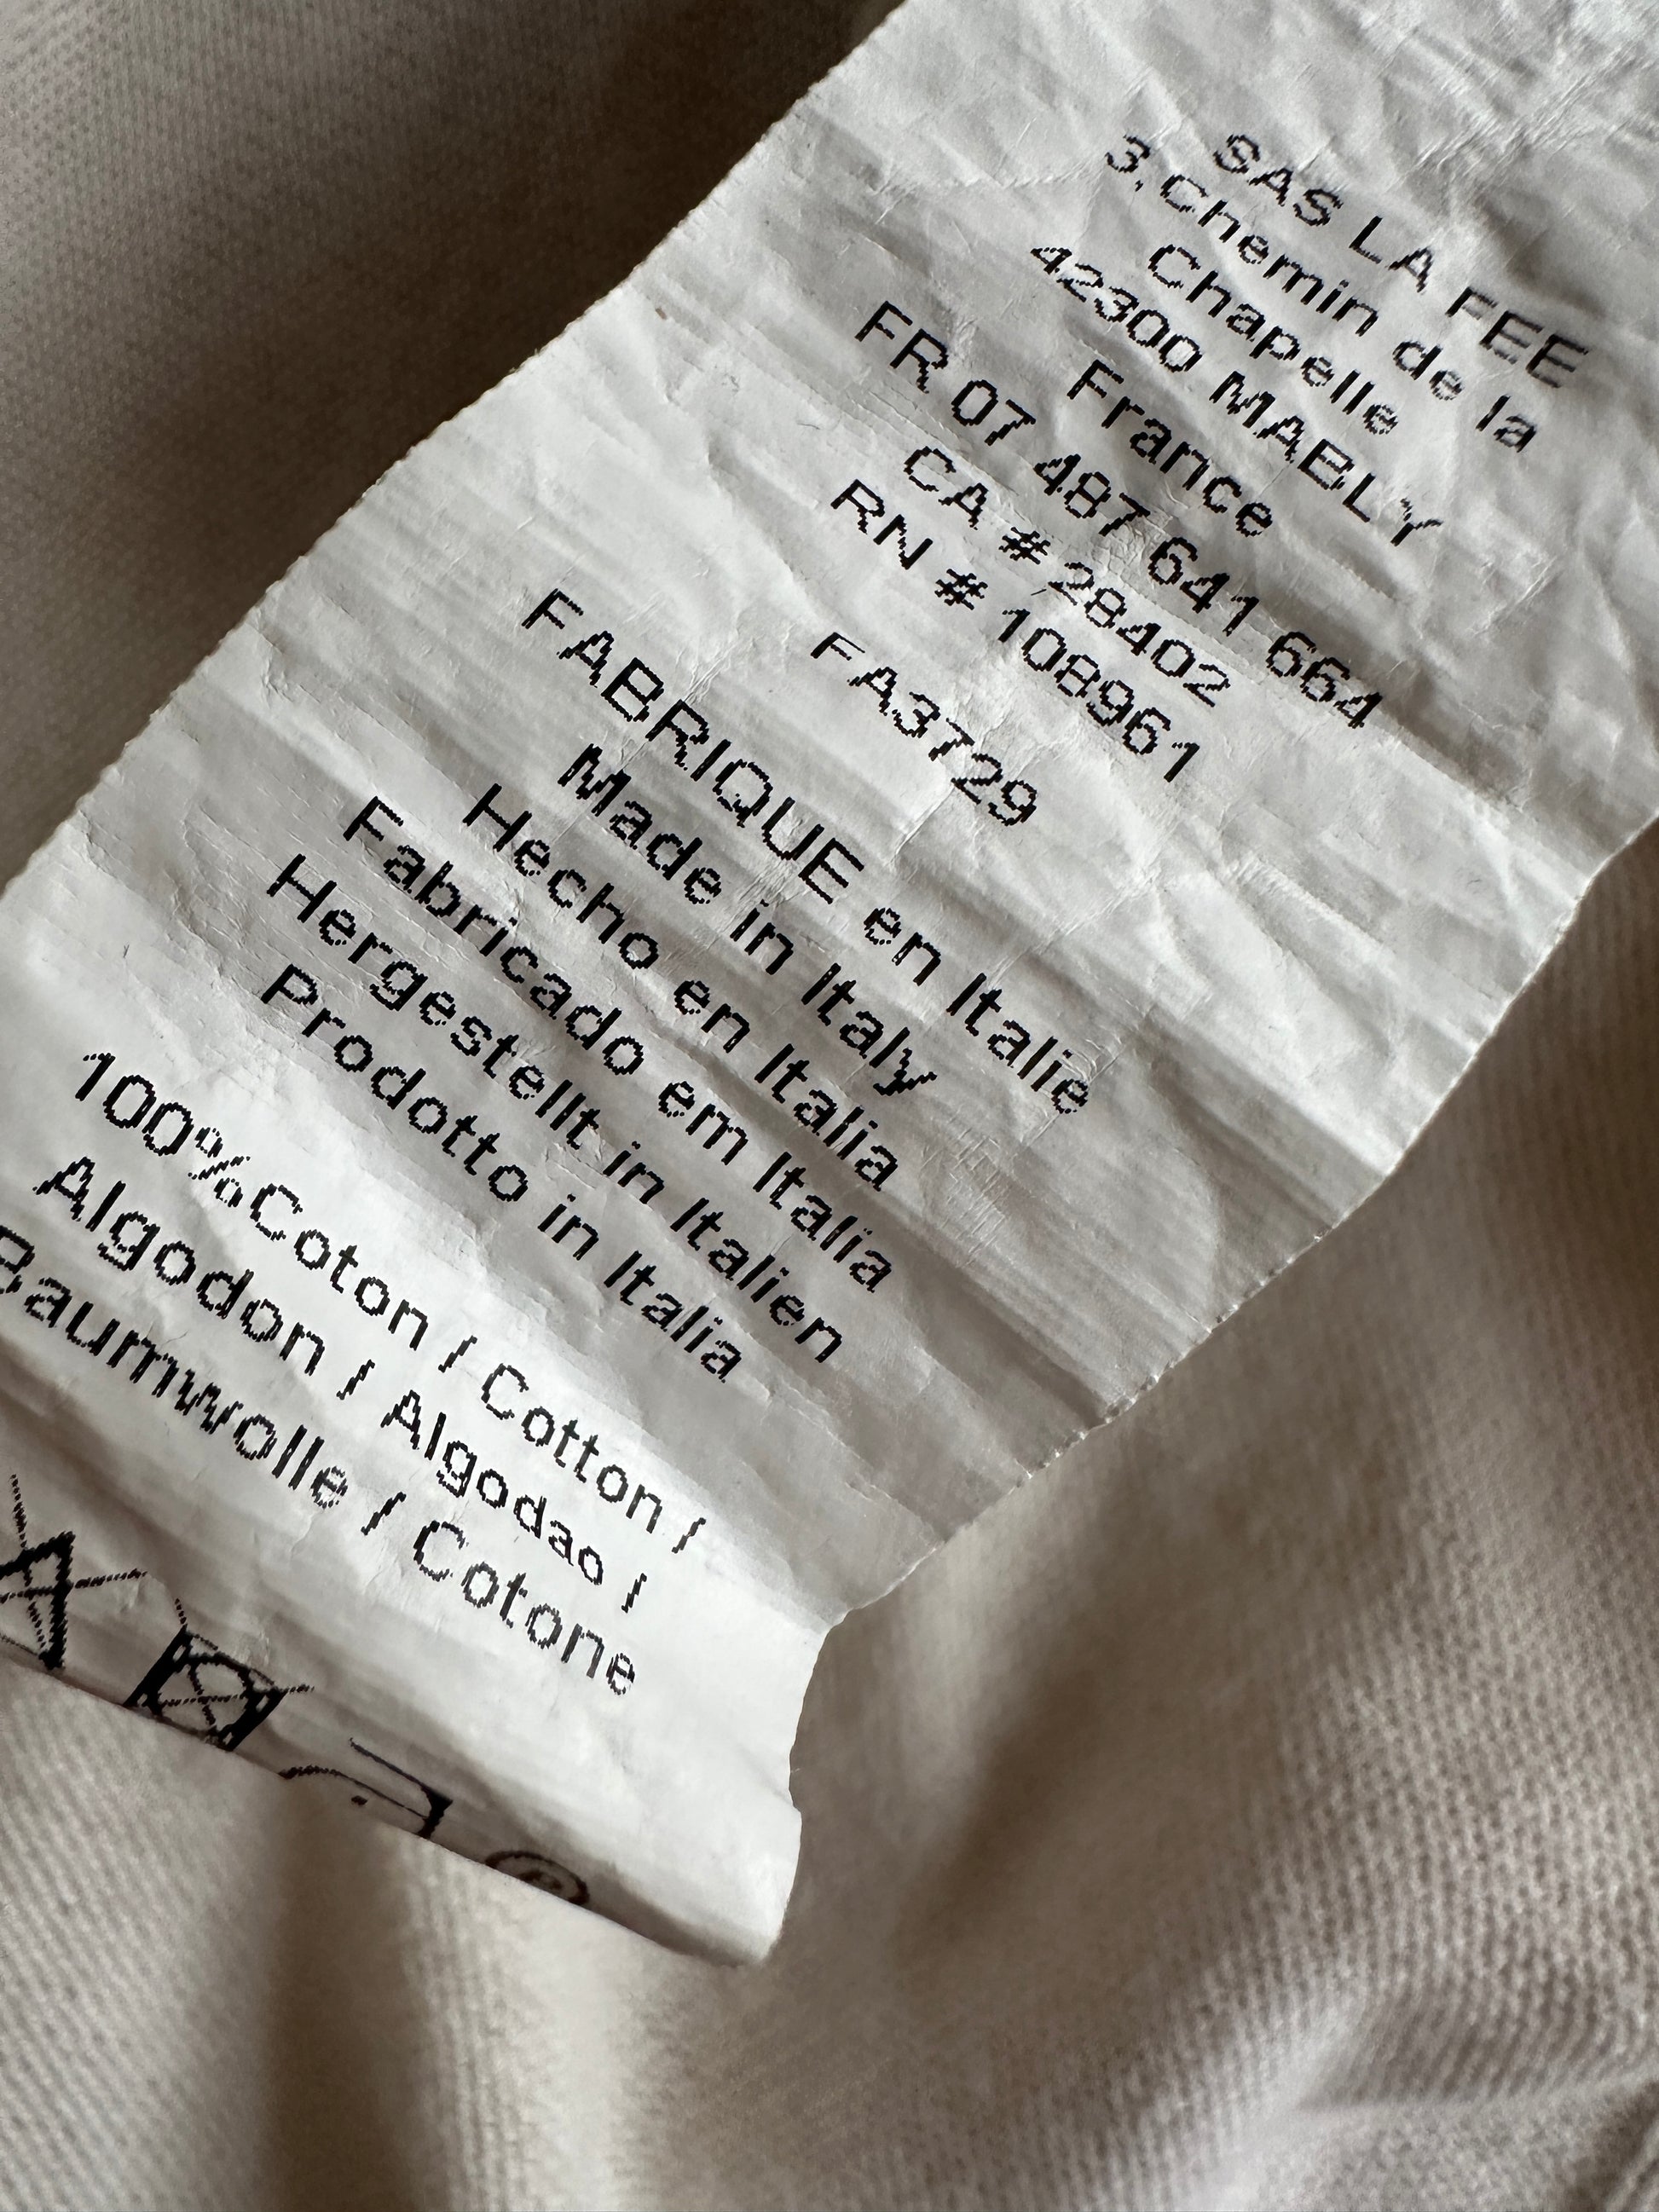 SAS LA FEE
3, Chemin de la
Chapelle
42300 MABLY
France
FR 07 487 641 664
CA # 28402
RN # 108961
FA3729
FABRIQUE en Italie
Made in Italy
Hecho en Italia
Fabricado em Italia
Hergestellt in Italien
Prodotto in Italia
100%Coton / Cotton /
Algodon / Algodao /
Baumwolle / Cotone